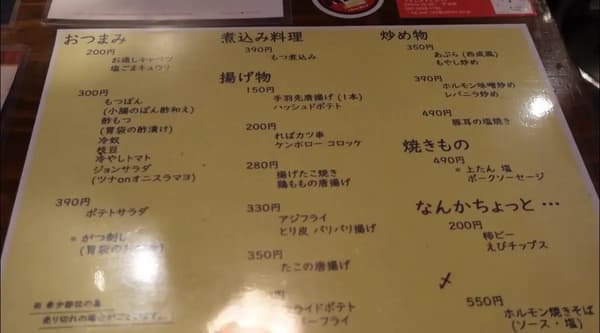 おつまみ
200円
お通しキャベツ
塩ごまキュウリ
300円
もつぽん
(小腸のぽん酢和え)
酢もつ
(胃袋の酢漬け)
冷奴
枝豆
冷やしトマト
ジョンサラダ
(ツナonオニスラマヨ)
390円
ポテトサラダ
※ がつ刺し
(胃袋の
売り切れの場合がございます。
煮込み料理
390円
もつ煮込み
揚げ物
150円
手羽先唐揚げ (1本)
ハッシュドポテト
200円
ればカツ串
ケンボロー コロッケ
280円
揚げたこ焼き
鶏ももの唐揚げ
330円
アジフライ
とり皮 パリパリ揚げ
350円
たこの唐揚げ
円
ライドポテト
ーフライ
炒め物
350円
あぶら (西成風)
もやし炒め
390円
ホルモン味噌炒め
レバニラ炒め
490円
豚耳の塩焼き
焼きもの
490円
※ 上たん 塩
ポークソーセージ
なんかちょっと…
200円
柿ピー
えびチップス
550円
ホルモン焼きそば
(ソース・塩)